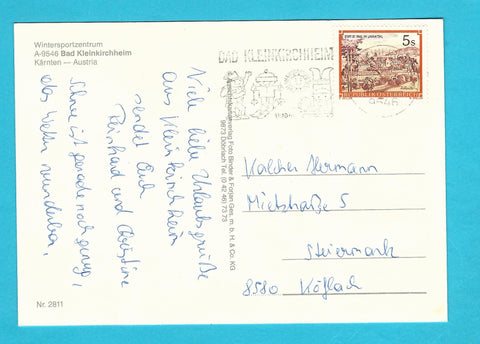 Wintersportzentrum
A-9546 Bad Kleinkirchheim
Kärnten — Austria
Viele liebe Urlaubsgrüße
aus Kleinkirchheim
sendet Euch
Reinhard und Christine
Schnee ist gerade noch genug,
das Wetter wunderbar.
Nr. 2811
Ansichtskartenverlag Foto Binder & Forjan Ges. m. b. H. & Co. KG
9873 Döbriach Tel. (0 42 46) 73 73
BAD KLEINKIRCHHEIM
9546
STIFT ST. PAUL IM LAVANTTAL
5s
REPUBLIK ÖSTERREICH
Kalcher Hermann
Mietzstraße 5
Steiermark
8580 Köflach